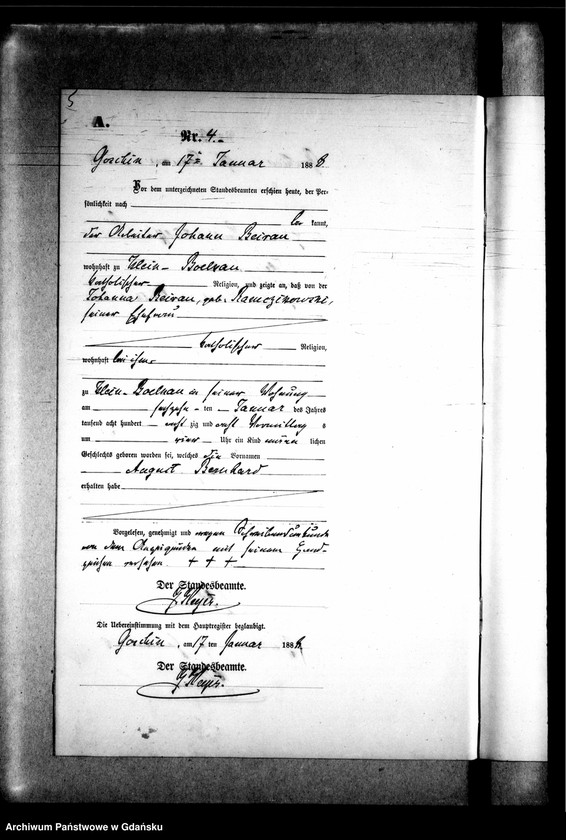 A.
Nr. 4.
Goschin, am 17ten Januar 1888
Vor dem unterzeichneten Standesbeamten erschien heute, der Per-
sönlichkeit nach
be kannt,
der Arbeiter Johann Beiran
wohnhaft zu Klein-Boelkau
katholischer Religion, und zeigte an, daß von der
Johanna Beiran, geb.
seiner Ehefrau
katholischer Religion,
wohnhaft bei ihm
zu Klein-Boelkau in seiner Wohnung
am sechzehn ten Januar des Jahres
tausend acht hundert acht zig und acht Vormittag s
um vier Uhr ein Kind männ lichen
Geschlechts geboren worden sei, welches die Vornamen
August Bernhard
erhalten habe
Vorgelesen, genehmigt und wegen Schreibensunkunde
von dem Anzeigenden mit seinem Hand-
zeichen versehen. + + +
Der Standesbeamte.
Die Uebereinstimmung mit dem Hauptregister beglaubigt.
Goschin, am 17 ten Januar 1888.
Der Standesbeamte.
Archiwum Państwowe w Gdańsku